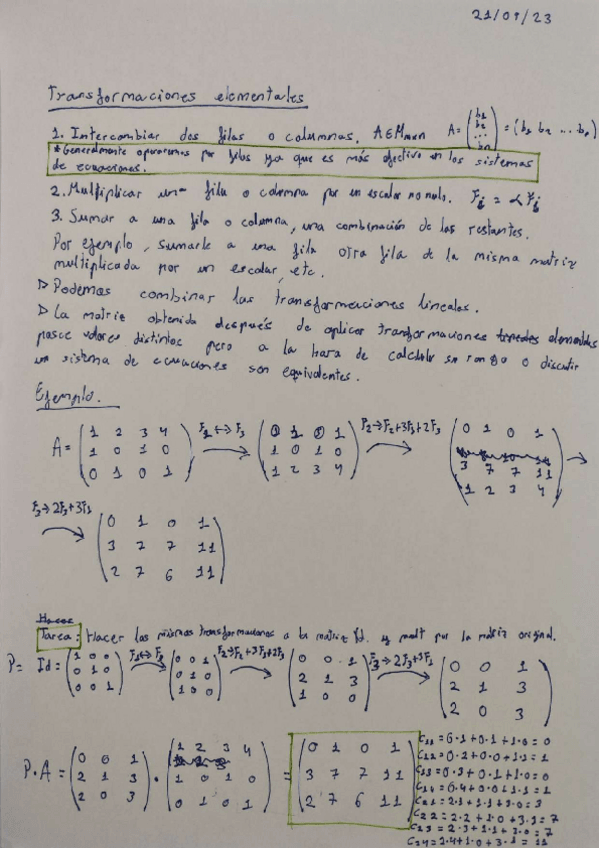 21/09/23
Transformaciones elementales
1. Intercambiar dos filas o columnas. A∈Mmxn A= (b1 b2 ... bn) = (b1 b2 ... bn)
* Generalmente operaremos por filas ya que es más efectivo en los sistemas
de ecuaciones.
2. Multiplicar una fila o columna por un escalar no nulo. Fi = αFi
3. Sumar a una fila o columna, una combinación de las restantes.
Por ejemplo, sumarle a una fila otra fila de la misma matriz
multiplicada por un escalar, etc.
▷ Podemos combinar las transformaciones lineales.
▷ La matriz obtenida después de aplicar tranformaciones elementales
posee valores distintos pero a la hora de calcular su rango o discutir
un sistema de ecuaciones son equivalentes.
Ejemplo.
F1↔F3 F2→F2+3F3+2F3
1 2 3 4 0 1 0 1 0 1 0 1
A= 1 0 1 0 → 1 0 1 0 → 3 7 7 11 →
0 1 0 1 1 2 3 4 1 2 3 4
F3→2F3+3F1
0 1 0 1
3 7 7 11
2 7 6 11
Tarea: Hacer las mismas transformaciones a la matriz Id. y mult por la matriz original.
F1↔F3 F2→F2+3F1+2F3 F3→2F3+3F1
1 0 0 0 0 1 0 0 1 0 0 1
P= Id= 0 1 0 → 0 1 0 → 2 1 3 → 2 1 3
0 0 1 1 0 0 1 0 0 2 0 3
0 0 1 1 2 3 4 0 1 0 1
P·A = 2 1 3 · 1 0 1 0 = 3 7 7 11
2 0 3 0 1 0 1 2 7 6 11
C11=0·1+0·1+1·0=0
C12=0·2+0·0+1·1=1
C13=0·3+0·1+1·0=0
C14=0·4+0·0+1·1=1
C21=2·1+1·1+3·0=3
C22=2·2+1·0+3·1=7
C23=2·3+1·1+3·0=7
C24=2·4+1·0+3·1=11